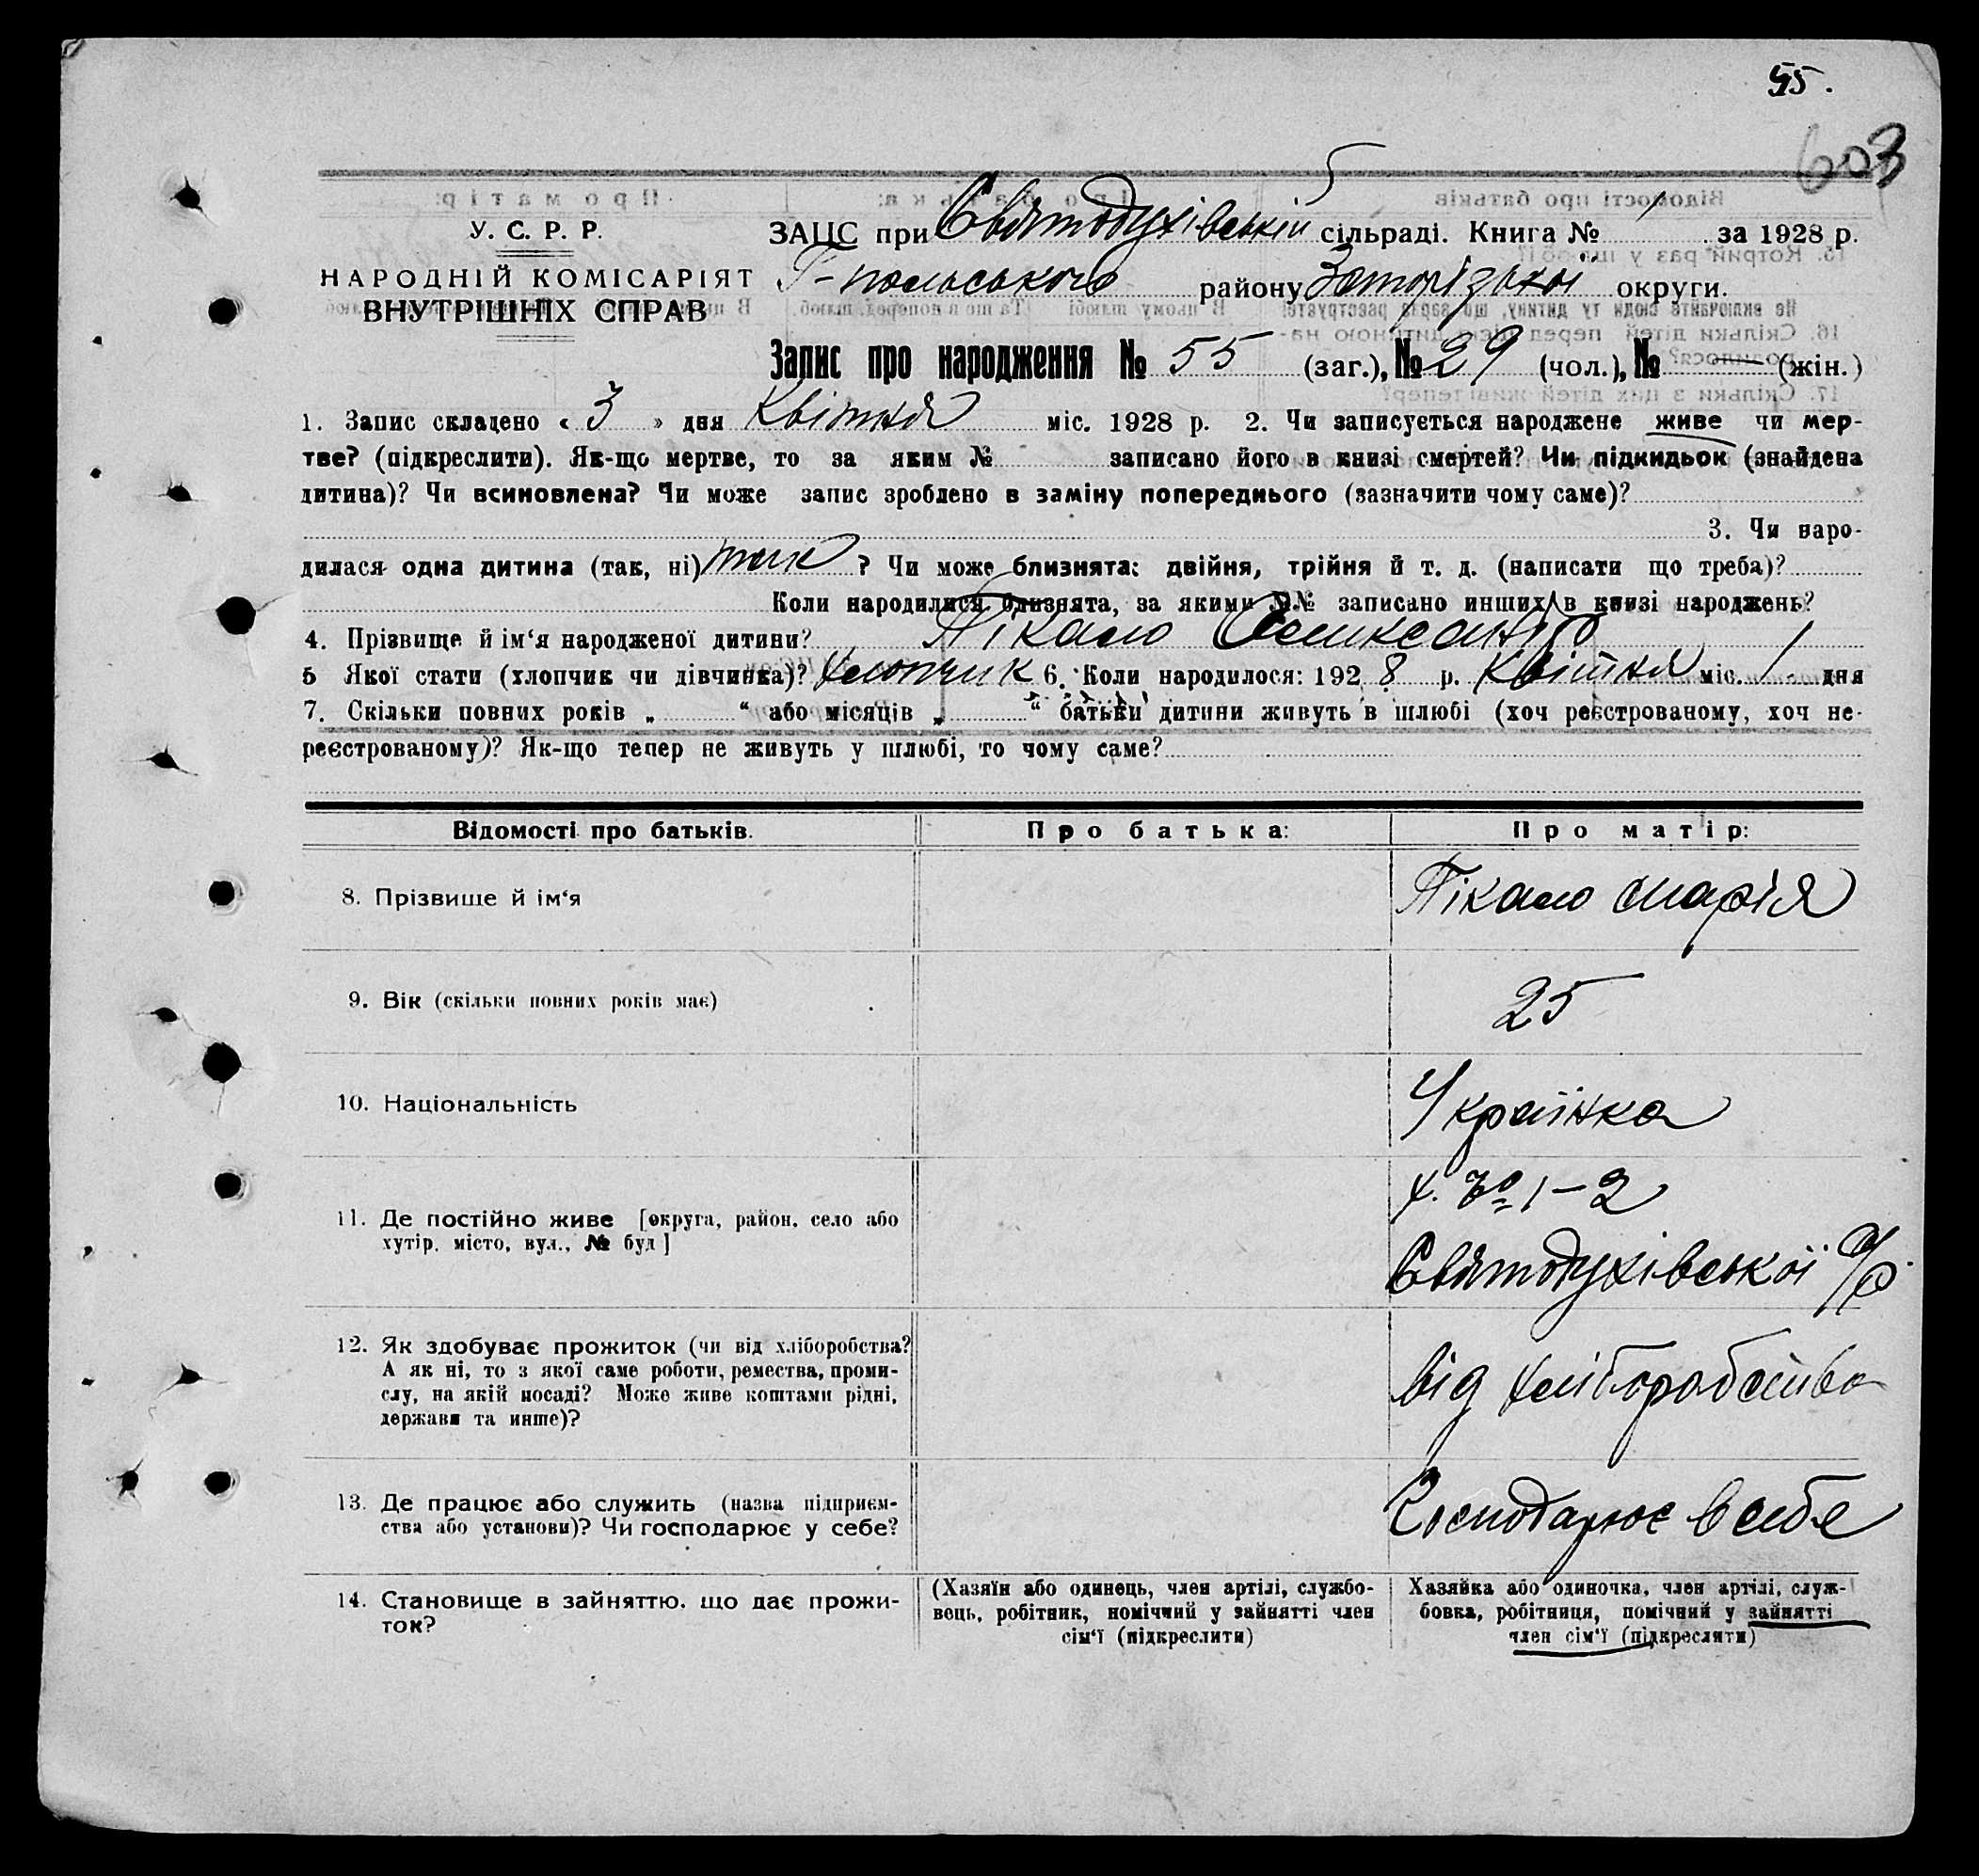 55.
603
У. С. Р. Р.
НАРОДНІЙ КОМІСАРІЯТ
ВНУТРІШНІХ СПРАВ
ЗАЦС при Святодухівській сільраді. Книга № 1 за 1928 р.
Г-польського району Запорізької округи.
Запис про народження № 55 (заг.), № 29 (чол.), № — (жін.)
1. Запис складено « 3 » дня Квітня міс. 1928 р. 2. Чи записується народжене живе чи мер-
тве? (підкреслити). Як-що мертве, то за яким № записано його в книзі смертей? Чи підкидьок (знайдена
дитина)? Чи всиновлена? Чи може запис зроблено в заміну попереднього (зазначити чому саме)?
3. Чи наро-
дилася одна дитина (так, ні) так ? Чи може близнята: двійня, трійня й т. д. (написати що треба)?
Коли народилися близнята, за якими №№ записано инших в книзі народжень?
4. Прізвище й ім‘я народженої дитини? Пікало Олександр
5 Якої стати (хлопчик чи дівчинка)? хлопчик 6. Коли народилося: 1928 р. Квітня міс. 1 дня
7. Скільки повних років „ “ або місяців „ “ батьки дитини живуть в шлюбі (хоч реєстрованому, хоч не-
реєстрованому)? Як-що тепер не живуть у шлюбі, то чому саме?
Відомості про батьків.
Про батька:
Про матір:
8. Прізвище й ім‘я
Пікало Марія
9. Вік (скільки повних років має)
25
10. Національність
Українка
11. Де постійно живе [округа, район, село або
хутір, місто, вул., № буд]
х. 1–2
Святодухівської с/р.
12. Як здобуває прожиток (чи від хліборобства?
А як ні, то з якої саме роботи, ремества, проми-
слу, на якій посаді? Може живе коштами рідні,
держави та инше)?
від хліборобства
13. Де працює або служить (назва підприєм-
ства або установи)? Чи господарює у себе?
Господарює в себе
14. Становище в зайняттю, що дає прожи-
ток?
(Хазяїн або одинець, член артілі, службо-
вець, робітник, помічний у зайнятті член
сім‘ї (підкреслити)
Хазяйка або одиночка, член артілі, служ-
бовка, робітниця, помічний у зайнятті
член сім‘ї (підкреслити)